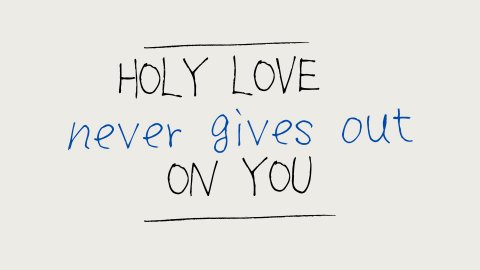 HOLY LOVE
never gives out
ON YOU